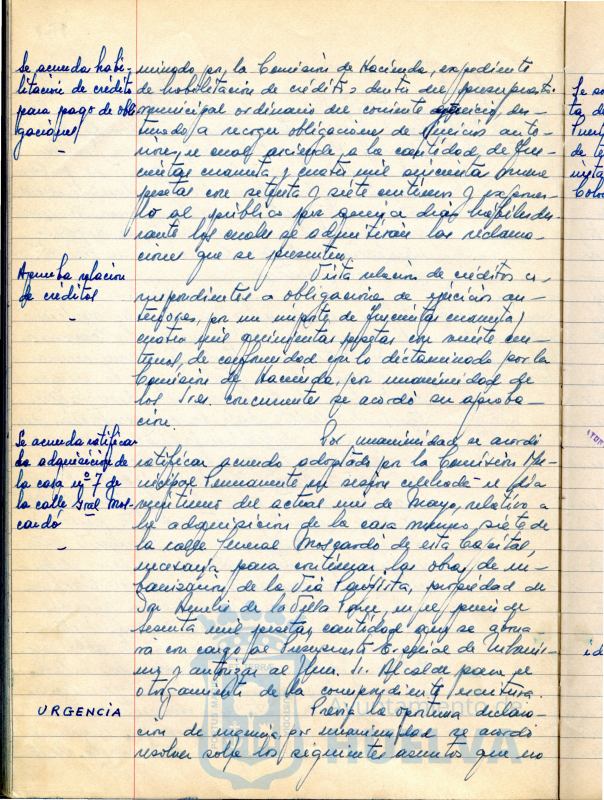 Se acuerda habi-
litación de crédito
para pago de obli
gaciones
-
minado por la Comisión de Hacienda, expediente
de habilitación de créditos dentro del presupuesto
municipal ordinario del corriente ejercicio, des-
tinado a recoger obligaciones de ejercicios ante-
riores, el cual asciende a la cantidad de
cuarenta y cuatro mil quinientas
pesetas con setenta y siete centimos y expones-
lo al público por quince días hábiles du-
rante los cuales se admitirán las reclama-
ciones que se presenten.
Aprueba relación
de créditos
-
Vista relación de créditos co-
rrespondientes a obligaciones de ejercicios an-
teriores, por un importe de cuarenta y
cuatro mil quinientas pesetas con siete cen-
timos, de conformidad con lo dictaminado por la
Comisión de Hacienda, por unanimidad de
los Sres. concurrentes se acordó su aproba-
ción.
Se acuerda ratificar
la adquisición de
la casa nº 7 de
la calle Gral Mos-
cardó
-
Por unanimidad se acordó
ratificar acuerdo adoptado por la Comisión Mu-
nicipal Permanente en sesión celebrada el día
del actual mes de Mayo, relativo a
la adquisición de la casa número siete de
la calle General Moscardó de esta Capital,
necesaria para continuar las obras de ur-
banización de la Vía Paisajista, propiedad de
Don Aurelio de la Villa, en el precio de
sesenta mil pesetas, cantidad que se abona-
rá con cargo al Presupuesto Especial de Urbanis-
mo y autorizar al Iltmo. Sr. Alcalde para el
otorgamiento de la correspondiente escritura.
URGENCIA
Previa la oportuna declara-
ción de urgencia por unanimidad se acordó
resolver sobre los siguientes asuntos que no
Ayuntamiento de
HUELVA